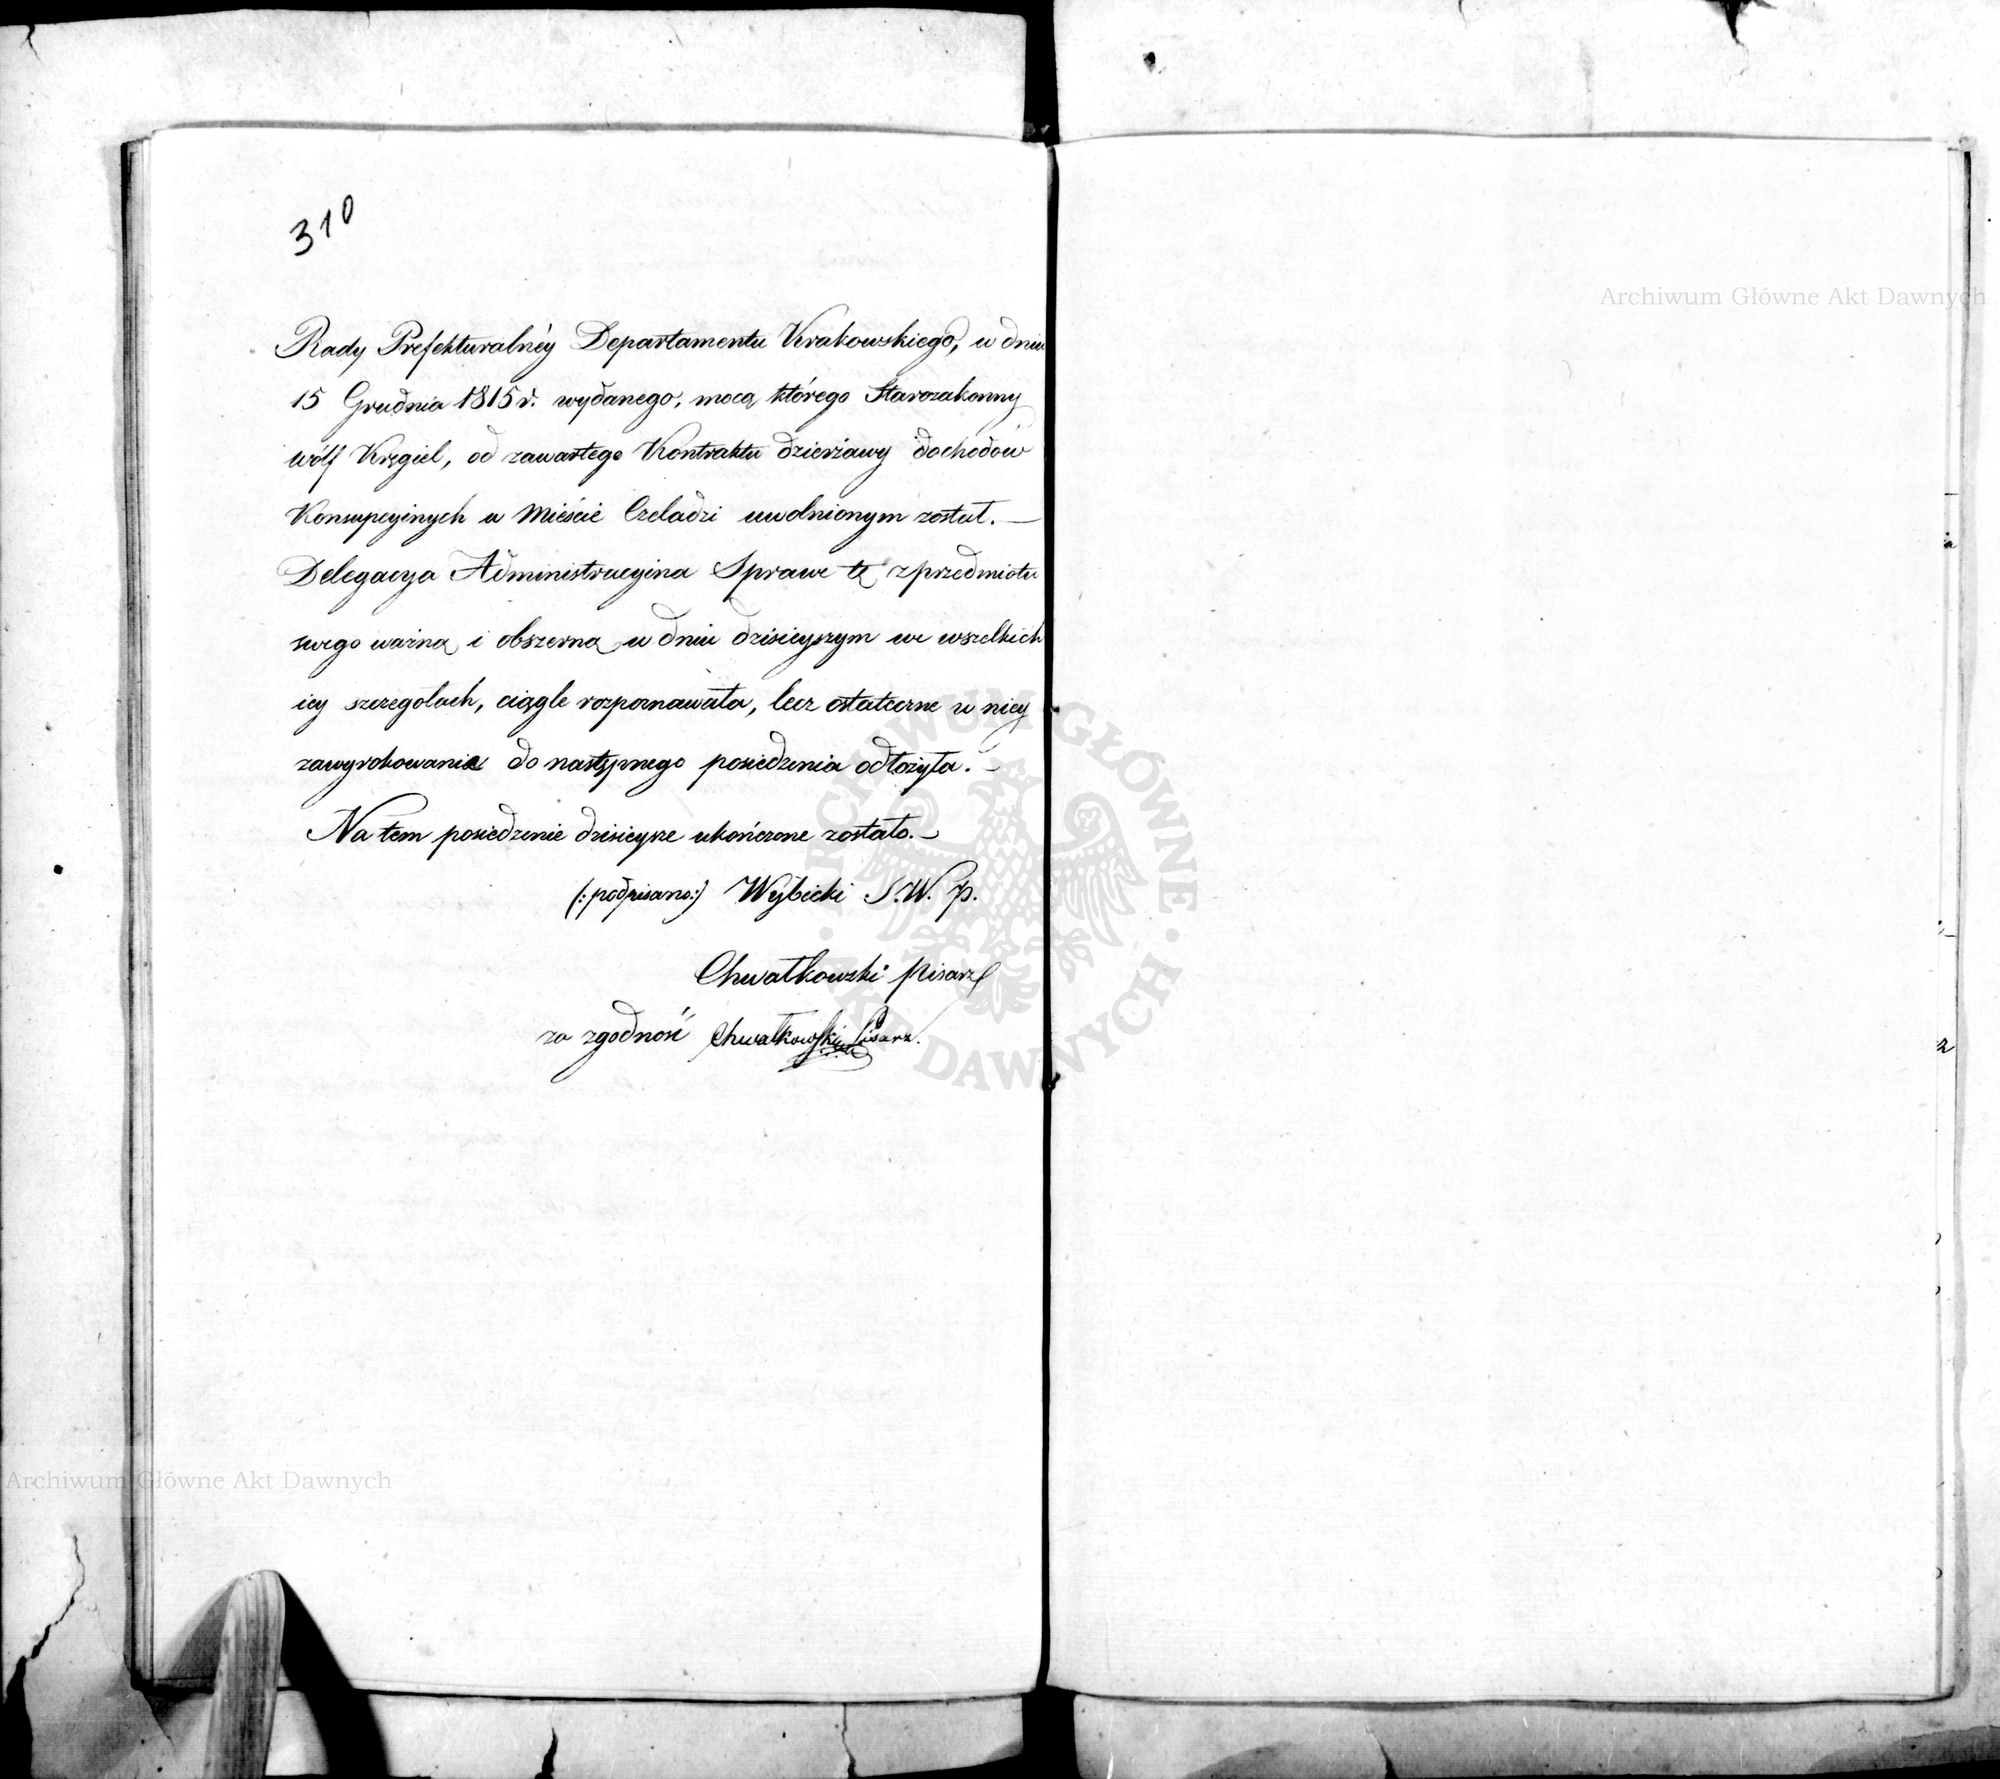 310
Rady Prefekturalnéy Departamentu Krakowskiego, w dniu
15 Grudnia 1815 r. wydanego, mocą którego Starozakonny
Wólf Kręgiel, od zawartego Kontraktu dzierżawy dochodów
Konsupcyinych w Mieście Czeladzi uwolnionym został. —
Delegacya Administracyina Sprawę tę z przedmiotu
swego ważną i obszerną w dniu dzisieyszym we wszelkich
iey szczegolach, ciągle rozpoznawała, lecz ostateczne w niey
zawyrokowanie do następnego posiedzenia odłożyła. —
Na tem posiedzenie dzisieysze ukończone zostało. —
(: podpisano:) Wybicki S. W. p.
Chwalkowski Pisarz
za zgodność Chwalkowski Pisarz.
Archiwum Główne Akt Dawnych
ARCHIWUM GŁÓWNE AKT DAWNYCH
Archiwum Główne Akt Dawnych